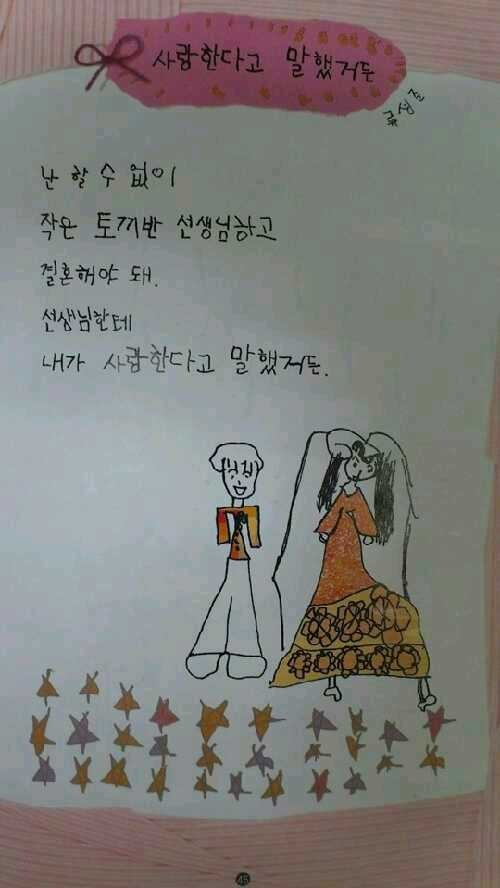 사랑한다고 말했거든
난 할 수 없이
작은 토끼반 선생님하고
결혼해야 돼.
선생님한테
내가 사랑한다고 말했거든.
45